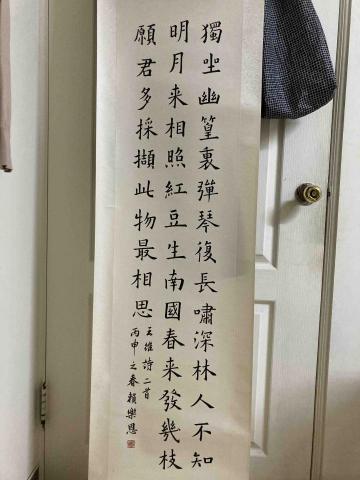 獨坐幽篁裏彈琴復長嘯深林人不知
明月来相照紅豆生南國春来發幾枝
願君多採擷此物最相思
王维詩二首
丙申之春賴樂恩